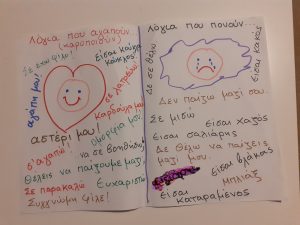 Λόγια που αγαπούν
(χαροποιούν)
Σε έχω φίλο!
Είσαι κούκλα
κούκλος
αγάπη μου!
σε λατρεύω
Καρδούλα μου
αστέρι μου!
Ομορφιά μου
σ'αγαπώ!!
να σε βοηθήσω;
Θέλεις να παίξουμε μαζί;
Σε παρακαλώ
Ευχαριστώ
Συγγνώμη φίλε!
Λόγια που πονούν...
Δε σε θέλω
Είσαι κακός
Δεν παίζω μαζί σου.
Σε μισώ
Είσαι χαζός
Είσαι σαλιάρης
Δε θέλω να παίξεις
μαζί μου.
Είσαι βλάκας
Μπλιάξ
Είσαι
καταραμένος